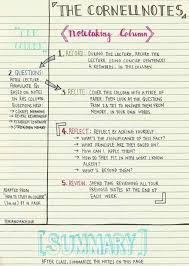 THE CORNELL NOTES
CUE
COLUMN
Notetaking Column
1. RECORD: DURING THE LECTURE, RECORD THE
LECTURE USING CONCISE SENTENCES
& KEYWORDS. IN THIS COLUMN
2. QUESTIONS:
AFTER LECTURE,
FORMULATE Qs
BASED ON NOTES
3. RECITE: COVER THIS COLUMN WITH A PIECE OF
PAPER. THEN LOOK AT THE QUESTIONS
4. REFLECT: REFLECT BY ASKING YOURSELF
→ WHAT'S THE SIGNIFICANCE OF THIS FACT?
→ WHAT PRINCIPLE ARE THEY BASED ON?
→ HOW CAN I APPLY THEM?
→ HOW DO THEY FIT IN WITH WHAT I KNOW
ALREADY?
→ WHAT'S BEYOND IT?
5. REVIEW: SPEND TIME REVIEWING ALL YOUR
PREVIOUS NOTES AT THE END OF
EACH WEEK.
ADAPTED FROM
HOW TO STUDY IN COLLEGE
[SUMMARY]
AFTER CLASS, SUMMARIZE THE NOTES ON THIS PAGE